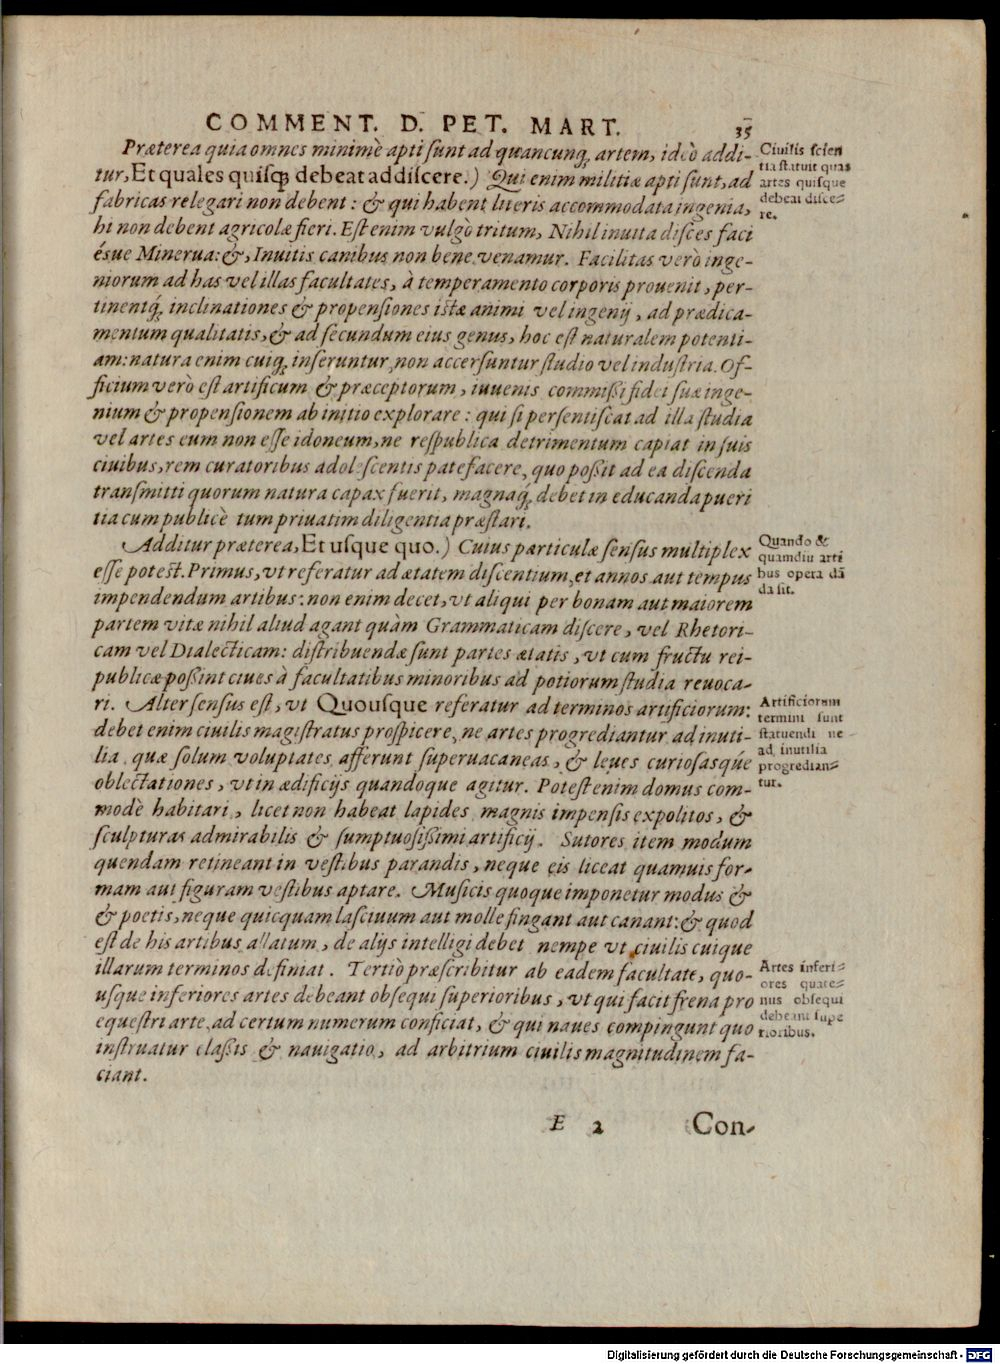 COMMENT. D. PET. MART. 35
Præterea quia omnes minimè apti sunt ad quancunq; artem, ideò addi-
tur, Et quales quisq; debeat addiscere.) Qui enim militiæ apti sunt, ad
fabricas relegari non debent: & qui habent literis accommodata ingenia,
hi non debent agricolæ fieri. Est enim vulgò tritum, Nihil inuita disces faci
ésue Minerua: &, Inuitis canibus non bene venamur. Facilitas verò inge-
niorum ad has vel illas facultates, à temperamento corporis prouenit, per-
tinentq́; inclinationes & propensiones istæ animi vel ingenij, ad prædica-
mentum qualitatis, & ad secundum eius genus, hoc est naturalem potenti-
am: natura enim cuiq; inseruntur, non accersuntur studio vel industria. Of-
ficium verò est artificum & præceptorum, iuuenis commissi fidei suæ inge-
nium & propensionem ab initio explorare: qui si persentiscat ad illa studia
vel artes eum non esse idoneum, ne respublica detrimentum capiat in suis
ciuibus, rem curatoribus adolescentis patefacere, quo possit ad ea discenda
transmitti quorum natura capax fuerit, magnaq́; debet in educanda pueri
tia cum publicè tum priuatim diligentia præstari.
Ciuilis scien
tia statuit quas
artes quisque
debeat disce-
re.
Additur præterea, Et usque quo.) Cuius particulæ sensus multiplex
esse potest. Primus, vt referatur ad ætatem discentium, et annos aut tempus
impendendum artibus: non enim decet, vt aliqui per bonam aut maiorem
partem vitæ nihil aliud agant quàm Grammaticam discere, vel Rhetori-
cam vel Dialecticam: distribuendæ sunt partes ætatis, vt cum fructu rei-
publicæ possint ciues à facultatibus minoribus ad potiorum studia reuoca-
ri. Alter sensus est, vt Quousque referatur ad terminos artificiorum:
debet enim ciuilis magistratus prospicere, ne artes progrediantur ad inuti-
lia, quæ solum voluptates afferunt superuacaneas, & leues curiosasq́ue
oblectationes, vt in ædificijs quandoque agitur. Potest enim domus com-
modè habitari, licet non habeat lapides magnis impensis expolitos, &
sculpturas admirabilis & sumptuosissimi artificij. Sutores item modum
quendam retineant in vestibus parandis, neque eis liceat quamuis for-
mam aut figuram vestibus aptare. Musicis quoque imponetur modus &
& poetis, neque quicquam lasciuum aut molle fingant aut canant: & quod
est de his artibus allatum, de alijs intelligi debet nempe vt ciuilis cuique
illarum terminos definiat. Tertiò præscribitur ab eadem facultate, quo-
usque inferiores artes debeant obsequi superioribus, vt qui facit frena pro
equestri arte, ad certum numerum conficiat, & qui naues compingunt quo
instruatur classis & nauigatio, ad arbitrium ciuilis magnitudinem fa-
ciant.
Quando &
quamdiu arti
bus opera dã
da sit.
Artificiorum
termini sunt
statuendi ne
ad inutilia
progredian-
tur.
Artes inferi-
ores quate-
nus obsequi
debeant supe
rioribus.
E 2 Con-
Digitalisierung gefördert durch die Deutsche Forschungsgemeinschaft - DFG